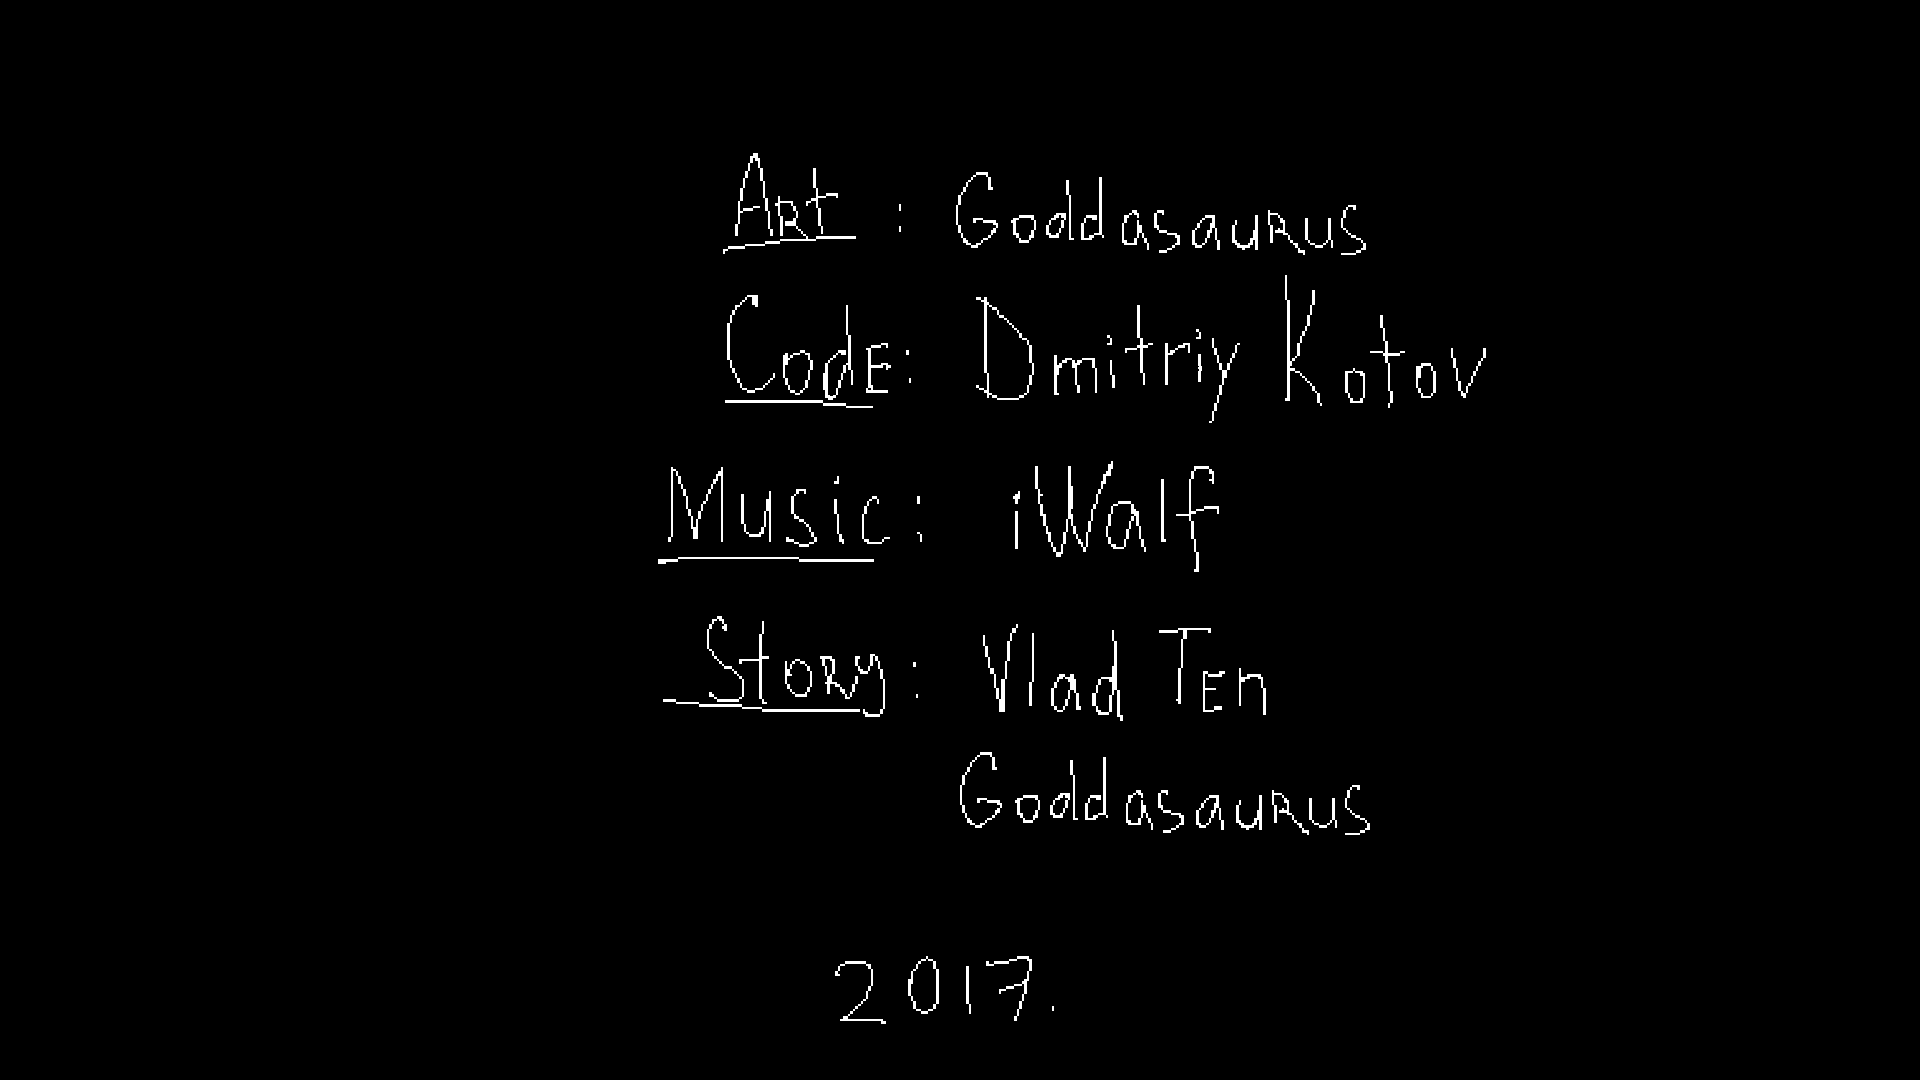 Art : Goddasaurus
Code: Dmitriy Kotov
Music: iWalf
Story: Vlad Ten
Goddasaurus
2017.